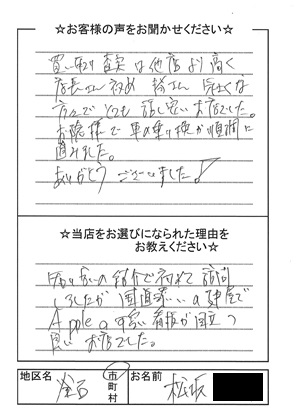 ☆お客様の声をお聞かせください☆
買い取り査定は他店より高く
店長さん初め 皆さん 気さくな
方々でとても話し易いお店でした。
お陰様で車の乗り換が順調に
進みました。
ありがとうございました!
☆当店をお選びになられた理由を
お教えください☆
知り合いの紹介で初めて訪問
しましたが 国道沿いの建屋で
Appleの可愛い看板が目立つ
良いお店でした。
地区名
市
町
村
お名前
松坂